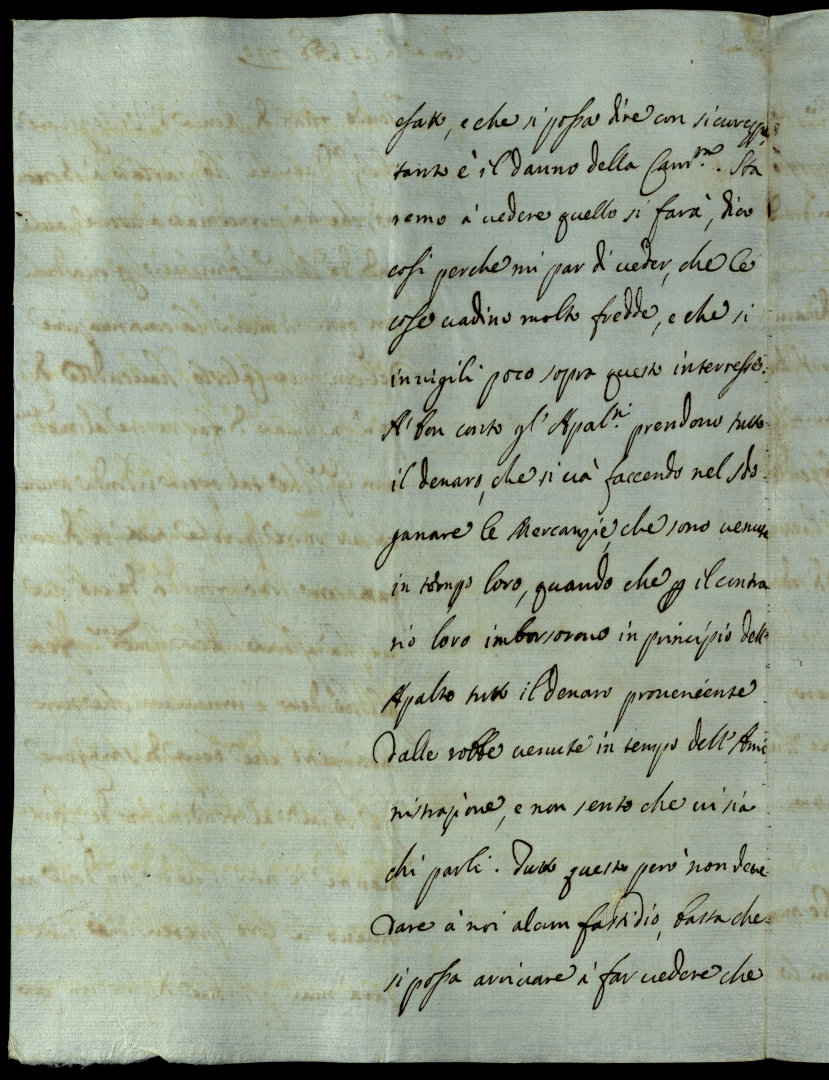 esatto, e che si possa dire con sicurezza
tanto è il danno della Cam.ra. Sta
remo à uedere quello si farà, dico
cosi perche mi par di ueder, che le
cose uadino molto fredde, e che si
inuigili poco sopra questo interresse.
A' bon conto gl'Apal.ri prendono tutto
il denaro, che si uà faccendo nel sdo
ganare le Mercanzie, che sono uenute
in tempo loro, quando che p il contra
rio loro imborsorono in principio dell'
Apalto tutto il denaro proueniente
dalle robbe uenute in tempo dell'Ami
nistrazione, e non sento che ui sia
chi parli. Tutto questo però non deue
dare à noi alcun fastidio, basta che
si possa arriuare à far uedere che